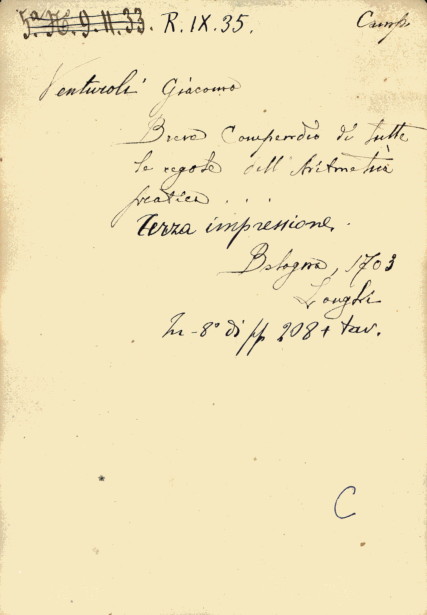 5ª H. 9. II. 33. R. IX. 35. Camp.
Venturoli Giacomo
Breve Compendio di tutte
le regole dell'Aritmetica
pratica . . .
Terza impressione.
Bologna, 1703
Longhi
In-8° di pp 208 + tav.
C